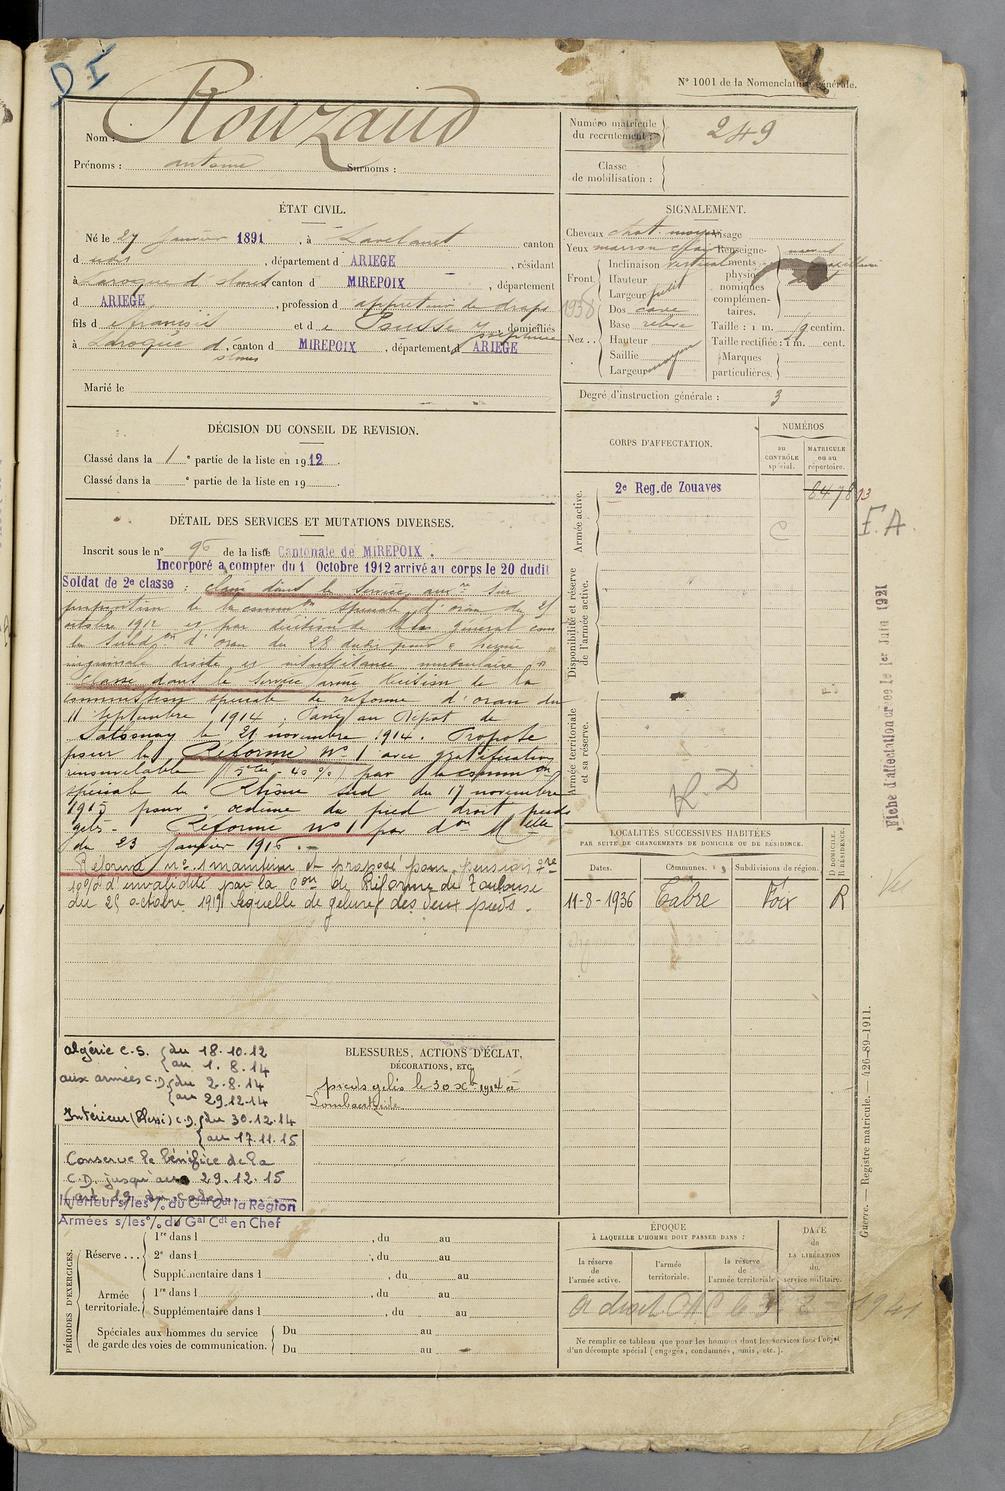 DI
N° 1001 de la Nomenclature générale.
Nom : Rouzaud
Prénoms : antoine Surnoms :
Numéro matricule du recrutement : 249
Classe de mobilisation :
ÉTAT CIVIL.
Né le 27 Janvier 1891, à Lavelanet canton
d udit, département d ARIEGE, résidant
à Laroque d'olmes canton d MIREPOIX, département
d ARIEGE, profession d appreteur de draps
fils d et d e domiciliés
à Laroque d'olmes, canton d MIREPOIX, département d ARIEGE
Marié le
SIGNALEMENT.
Cheveux chat moyen Visage
Yeux marron clair Renseignements physionomiques complémentaires.
Front Inclinaison vertical
Hauteur
Largeur petit
1938
Nez Dos cave
Base relevé
Hauteur
Saillie
Largeur moyen
Taille : 1 m. centim.
Taille rectifiée : 1 m. cent.
Marques particulières.
Degré d'instruction générale : 3
DÉCISION DU CONSEIL DE REVISION.
Classé dans la 1e partie de la liste en 1912.
Classé dans la e partie de la liste en 19 .
CORPS D'AFFECTATION.
NUMÉROS
au CONTRÔLE spécial.
MATRICULE ou au répertoire.
Armée active.
2e Reg. de Zouaves 8478
C
F.A.
Disponibilité et réserve de l'armée active.
Armée territoriale et sa réserve.
R.D
Fiche d'affectation créée le 1er Juin 1921
DÉTAIL DES SERVICES ET MUTATIONS DIVERSES.
Inscrit sous le n° 96 de la liste Cantonale de MIREPOIX.
Incorporé à compter du 1 Octobre 1912 arrivé au corps le 20 dudit
Soldat de 2e classe : classé dans le service auxre sur
proposition de la common spéciale d'oran du 25
octobre 1912 et par décision de Mr le général comt
la Subdon d'oran du 28 dudit pour " hernie
inguinale droite et insuffisance musculaire "
Classé dans le service armé décision de la
commission spéciale de réforme d'oran du
11 Septembre 1914 ; Passé au Dépot de
Sathonay le 21 novembre 1914. Proposé
pour la Réforme n° 1 avec gratification
renouvelable (5 - 40 %) par la common
spéciale du Rhône Sud du 17 novembre
1915 pour " oedème du pied droit pieds
gelés - Réformé n° 1 par don Mtelle
du 23 Janvier 1916 . -
Réforme n° 1 maintenu et proposé pour pension
10% d'invalidité par la Con de Réforme de Toulouse
du 25 octobre 1919 séquelle de gelures des deux pieds.
LOCALITÉS SUCCESSIVES HABITÉES
PAR SUITE DE CHANGEMENTS DE DOMICILE OU DE RÉSIDENCE.
Dates. Communes. Subdivisions de région. D DOMICILE. R RÉSIDENCE.
11-8-1936 Tabre Foix R
Vu
algérie C.S. du 18.10.12
au 1.8.14
aux armées C.D. du 2.8.14
au 29.12.14
Intérieur (Blessé) C.D. du 30.12.14
au 17.11.15
Conserve le bénéfice de la
C.D. jusqu'au 29.12.15
Intérieur s/les % du Gal Cdt la Région
Armées s/les % du Gal Cdt en Chef
BLESSURES, ACTIONS D'ÉCLAT,
DÉCORATIONS, ETC.
pieds gelés le 30 Xbre 1914 à
Lombaertzyde
PÉRIODES D'EXERCICES.
Réserve ... 1re dans l , du au
2e dans l , du au
Supplémentaire dans l , du au
Armée territoriale. 1re dans l , du au
Supplémentaire dans l , du au
Spéciales aux hommes du service de garde des voies de communication. Du au
Du au
ÉPOQUE
À LAQUELLE L'HOMME DOIT PASSER DANS :
la réserve de l'armée active.
l'armée territoriale.
la réserve de l'armée territoriale
DATE de LA LIBÉRATION du service militaire.
A droit CAC le 3 1941
Ne remplir ce tableau que pour les hommes dont les services font l'objet
d'un décompte spécial (engagés, condamnés, omis, etc.).
Guerre. — Registre matricule. — 426-89-1911.